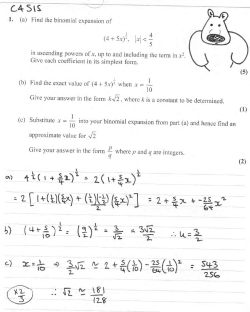 CASIS
1. (a) Find the binomial expansion of
(4 + 5x)^{1/2}, |x| < 4/5
in ascending powers of x, up to and including the term in x².
Give each coefficient in its simplest form.
(5)
(b) Find the exact value of (4 + 5x)^{1/2} when x = 1/10
Give your answer in the form k√2, where k is a constant to be determined.
(1)
(c) Substitute x = 1/10 into your binomial expansion from part (a) and hence find an
approximate value for √2
Give your answer in the form p/q where p and q are integers.
(2)
a) 4^{1/2}(1 + 5/4 x)^{1/2} = 2(1 + 5/4 x)^{1/2}
= 2[1 + (1/2)(5/4 x) + (1/2)(-1/2)/2 (5/4 x)²] = 2 + 5/4 x + -25/64 x²
b) (4 + 5/10)^{1/2} = (9/2)^{1/2} = 3/√2 = 3√2/2 ∴ k = 3/2
c) x = 1/10 ⇒ 3/2 √2 ≈ 2 + 5/4(1/10) - 25/64(1/10)² = 543/256
×2/3 ∴ √2 ≈ 181/128